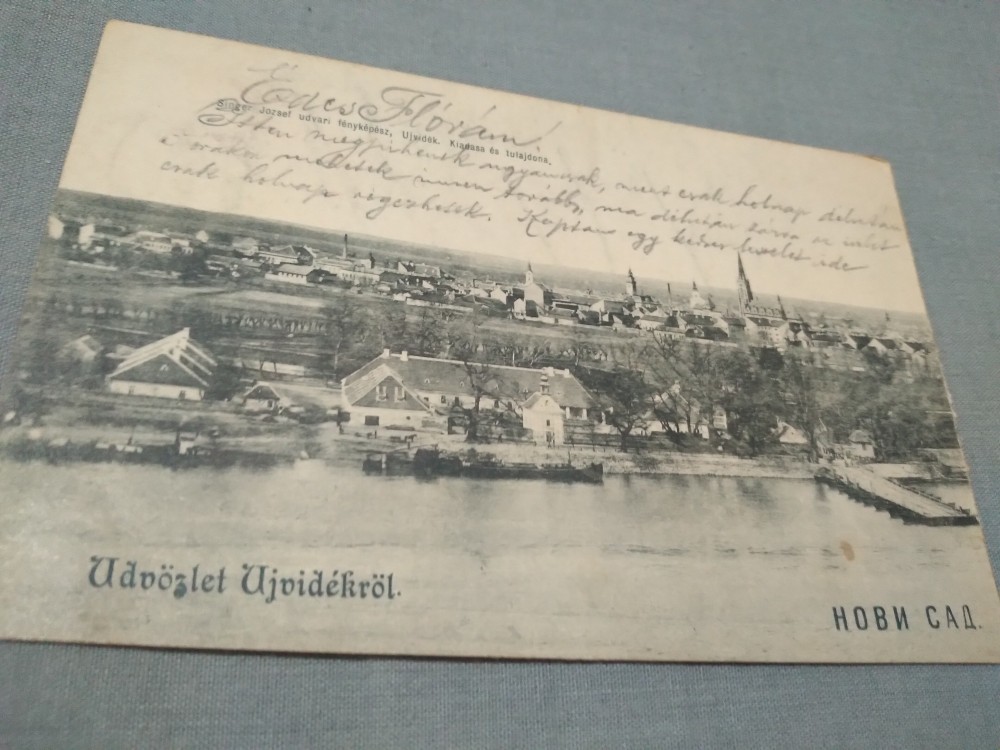 Édes Flórám!
Singer József udvari fényképész, Ujvidék. Kiadása és tulajdona.
Itten megpihenünk ugyancsak, mert csak holnap délután
órakor innen tovább, ma délután zárva az
csak holnap végezhetek. Kaptam egy kedves levelet ide
Udvözlet Ujvidékröl.
НОВИ САД.